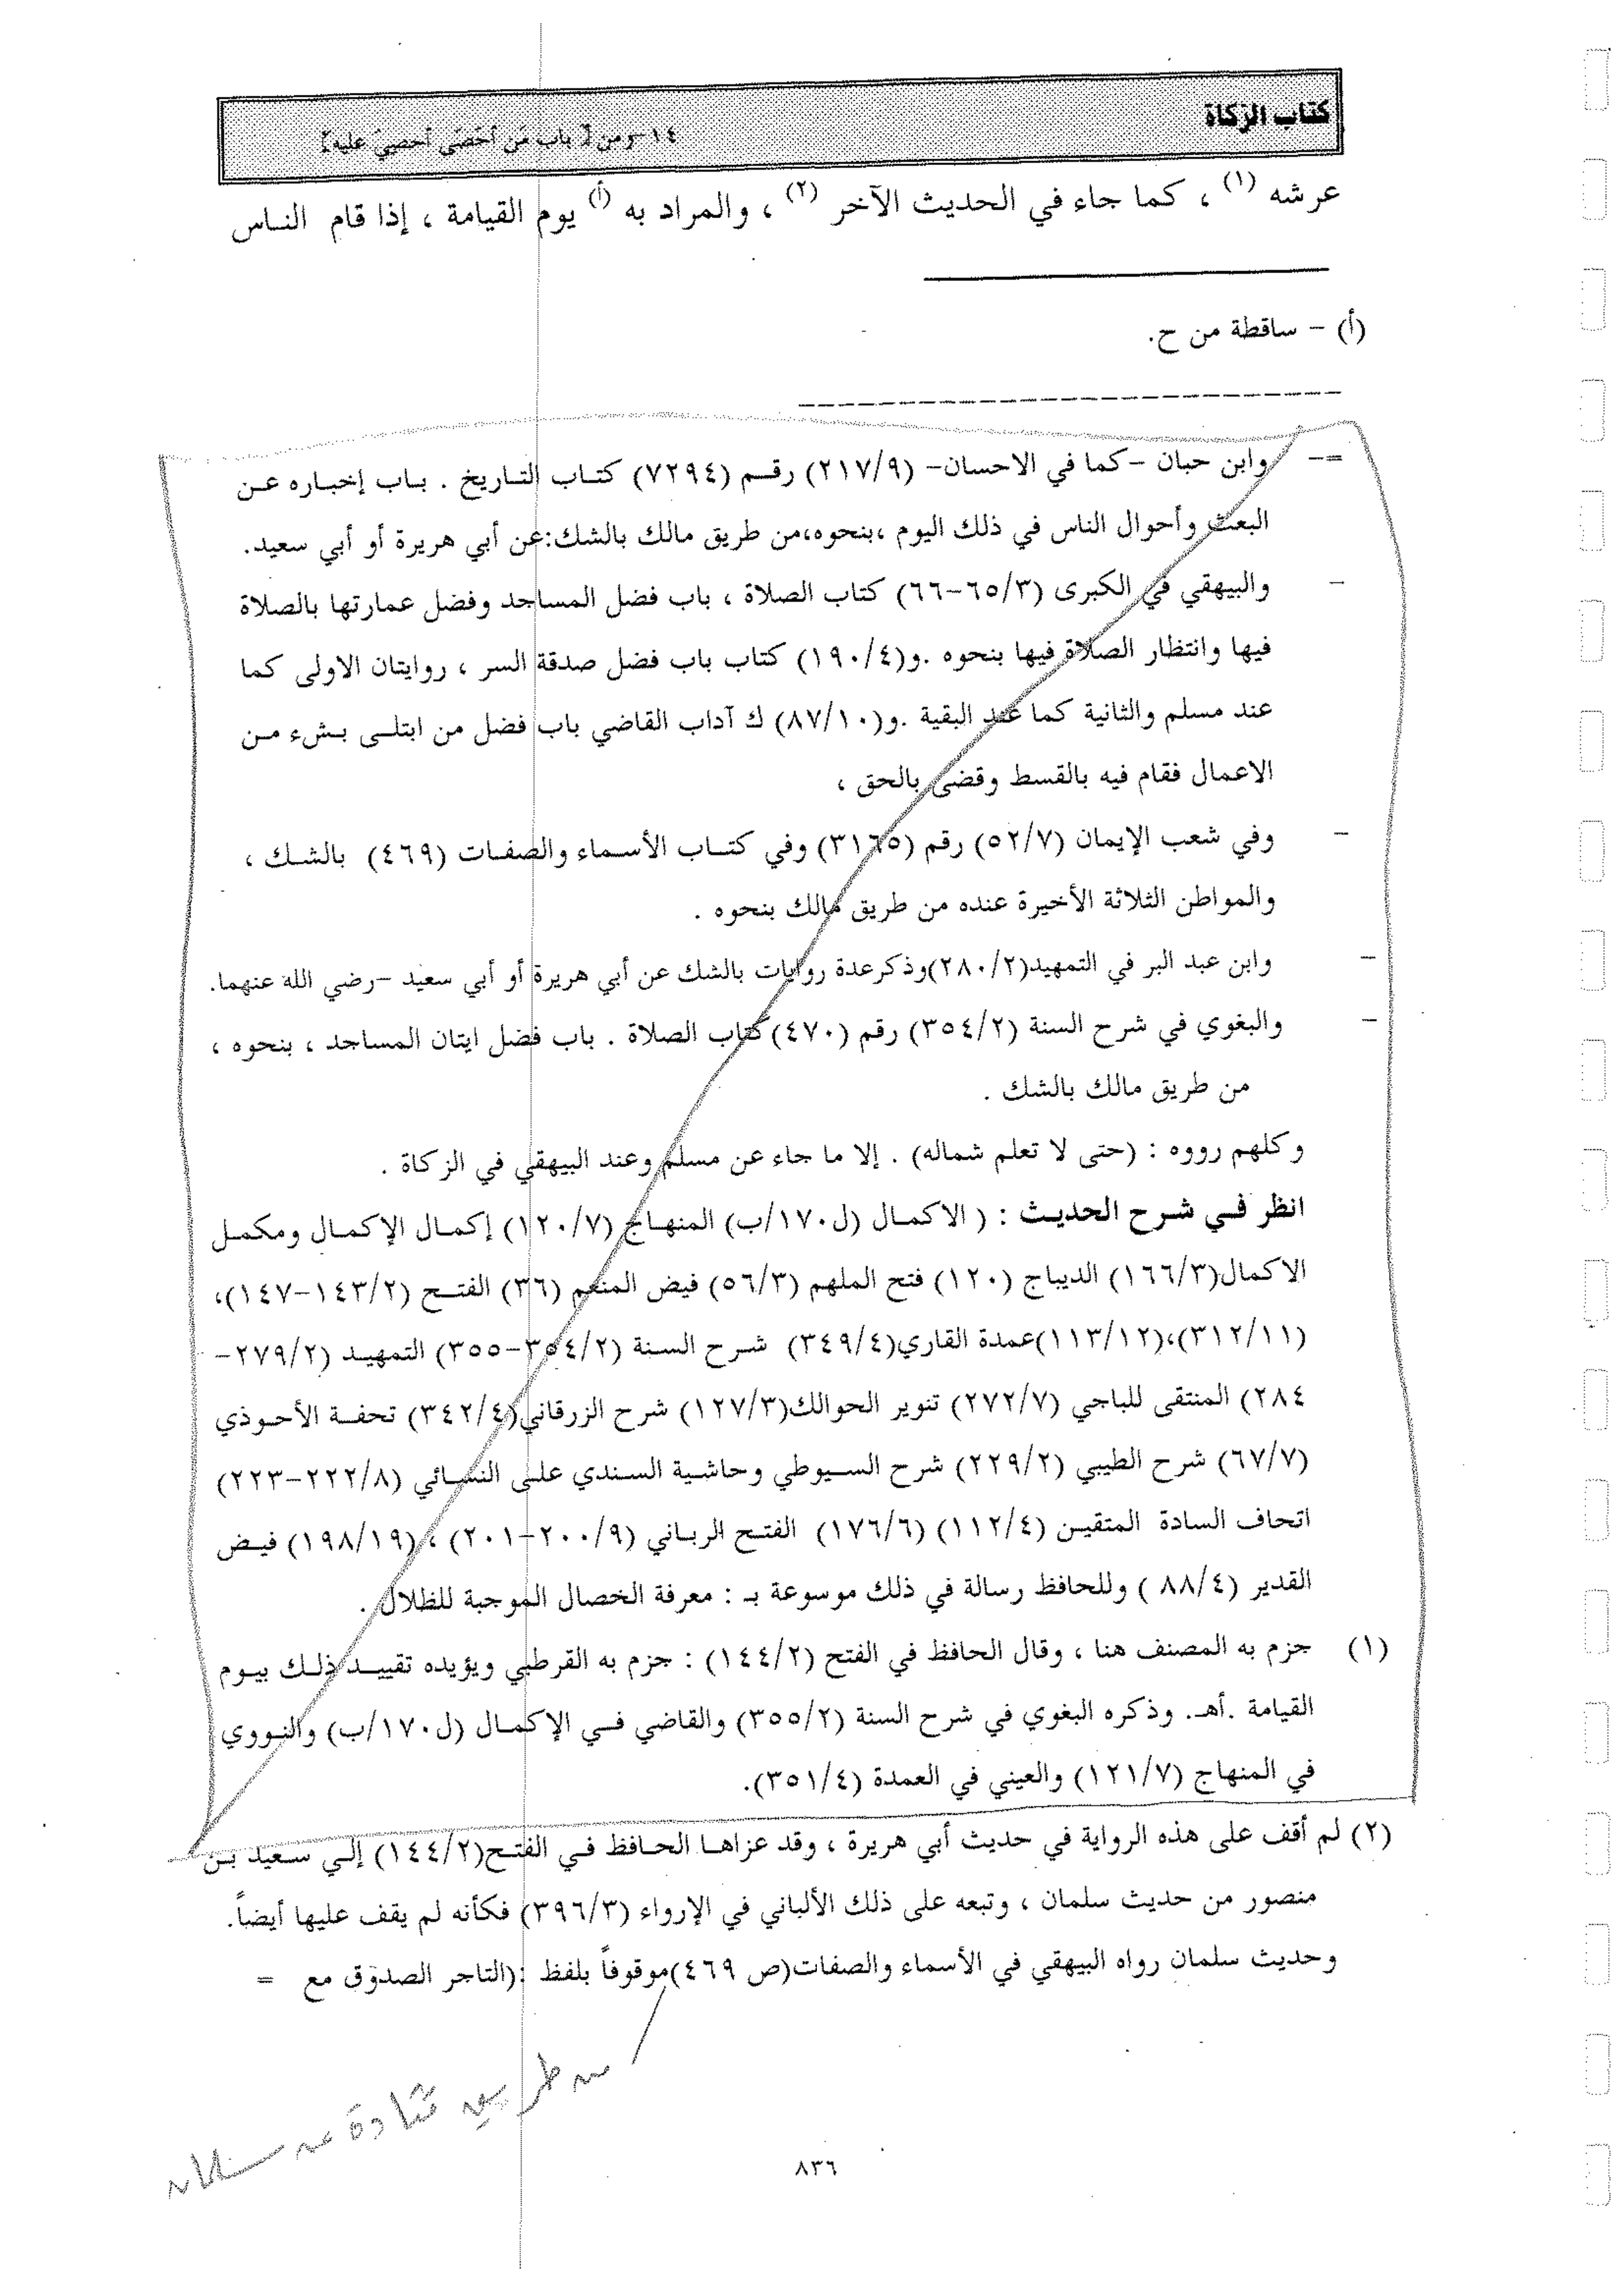 كتاب الزكاة
١٤-ومن [ باب مَن أحْصَى أُحصِيَ عليه]
عرشه (١) ، كما جاء في الحديث الآخر (٢) ، والمراد به (أ) يوم القيامة ، إذا قام الناس
(أ) - ساقطة من ح.
=- وابن حبان -كما في الاحسان- (٢١٧/٩) رقم (٧٢٩٤) كتاب التاريخ . باب إخباره عن
البعث وأحوال الناس في ذلك اليوم ،بنحوه،من طريق مالك بالشك:عن أبي هريرة أو أبي سعيد.
- والبيهقي في الكبرى (٦٥/٣-٦٦) كتاب الصلاة ، باب فضل المساجد وفضل عمارتها بالصلاة
فيها وانتظار الصلاة فيها بنحوه .و(١٩٠/٤) كتاب باب فضل صدقة السر ، روايتان الاولى كما
عند مسلم والثانية كما عند البقية .و(٨٧/١٠) ك آداب القاضي باب فضل من ابتلى بشء من
الاعمال فقام فيه بالقسط وقضى بالحق ،
- وفي شعب الإيمان (٥٢/٧) رقم (٣١٦٥) وفي كتاب الأسماء والصفات (٤٦٩) بالشك ،
والمواطن الثلاثة الأخيرة عنده من طريق مالك بنحوه .
- وابن عبد البر في التمهيد(٢٨٠/٢)وذكرعدة روايات بالشك عن أبي هريرة أو أبي سعيد -رضي الله عنهما.
- والبغوي في شرح السنة (٣٥٤/٢) رقم (٤٧٠)كتاب الصلاة . باب فضل ايتان المساجد ، بنحوه ،
من طريق مالك بالشك .
وكلهم رووه : (حتى لا تعلم شماله) . إلا ما جاء عن مسلم وعند البيهقي في الزكاة .
انظر في شرح الحديث : ( الاكمال (ل١٧٠/ب) المنهاج (١٢٠/٧) إكمال الإكمال ومكمل
الاكمال(١٦٦/٣) الديباج (١٢٠) فتح الملهم (٥٦/٣) فيض المنعم (٣٦) الفتح (١٤٣/٢-١٤٧)،
(٣١٢/١١)،(١١٣/١٢)عمدة القاري(٣٤٩/٤) شرح السنة (٣٥٤/٢-٣٥٥) التمهيد (٢٧٩/٢-
٢٨٤) المنتقى للباجي (٢٧٢/٧) تنوير الحوالك(١٢٧/٣) شرح الزرقاني(٣٤٢/٤) تحفة الأحوذي
(٦٧/٧) شرح الطيبي (٢٢٩/٢) شرح السيوطي وحاشية السندي على النسائي (٢٢٢/٨-٢٢٣)
اتحاف السادة المتقين (١١٢/٤) (١٧٦/٦) الفتح الرباني (٢٠٠/٩-٢٠١) ، (١٩٨/١٩) فيض
القدير (٨٨/٤ ) وللحافظ رسالة في ذلك موسوعة بـ : معرفة الخصال الموجبة للظلال .
(١) جزم به المصنف هنا ، وقال الحافظ في الفتح (١٤٤/٢) : جزم به القرطبي ويؤيده تقييد ذلك بيوم
القيامة .أهـ. وذكره البغوي في شرح السنة (٣٥٥/٢) والقاضي في الإكمال (ل١٧٠/ب) والنووي
في المنهاج (١٢١/٧) والعيني في العمدة (٣٥١/٤).
(٢) لم أقف على هذه الرواية في حديث أبي هريرة ، وقد عزاها الحافظ في الفتح(١٤٤/٢) إلي سعيد بن
منصور من حديث سلمان ، وتبعه على ذلك الألباني في الإرواء (٣٩٦/٣) فكأنه لم يقف عليها أيضاً.
وحديث سلمان رواه البيهقي في الأسماء والصفات(ص ٤٦٩)موقوفاً بلفظ :(التاجر الصدوق مع =
من طريق قتادة عن سلمان
٨٣٦